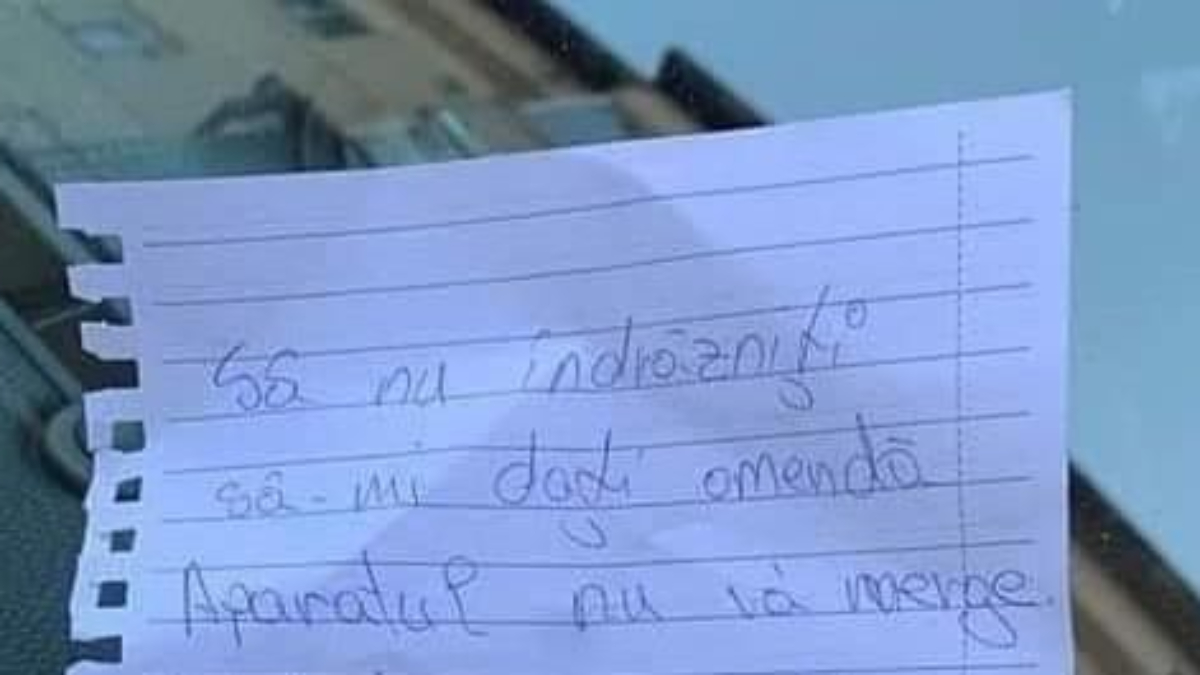 Să nu îndrăzniți
să-mi dați omendă
Aparatul nu vă merge.